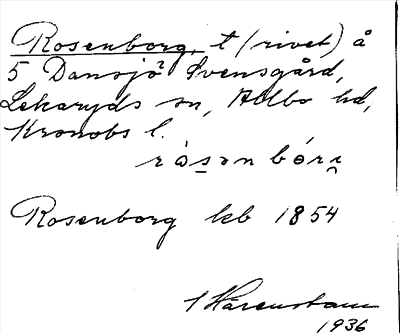 Rosenborg, t (rivet) å
5 Dansjö Svensgård,
Lekaryds sn, Allbo hd,
Kronobs l.
Rosenborg kb 1854
Härenstam
1936